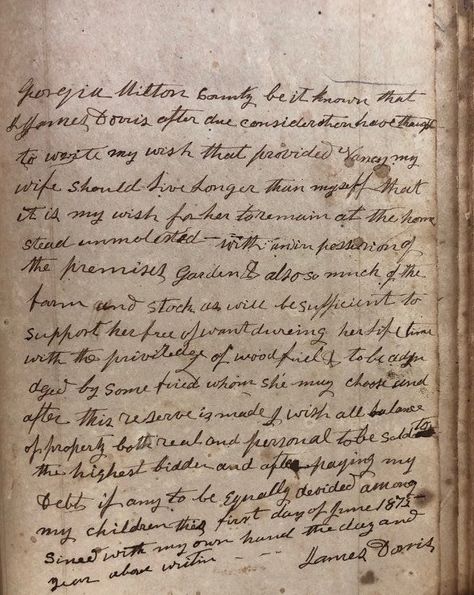 Georgia Milton County be it known that
I James Dovis after due consideration have thaught
to wente my wish that provided Nancy my
wife should live Longer than myself that
it is my wish for her to remain at the home
stead unmolested — with possession of
the premises Garden & also so much of the
farm and stock as will be sufficient to
support her free of want dureing her life time
with the priviledge of wood fuel & to be adju
dged by some friend whom she may choose and
after this reserve is made I wish all balance
of property both real and personal to be sold to
the highest bidder and after paying my
Debts if any to be Equally divided among
my children this first day of June 1875
Sined with my own hand the day and
year above writin — — James Dovis